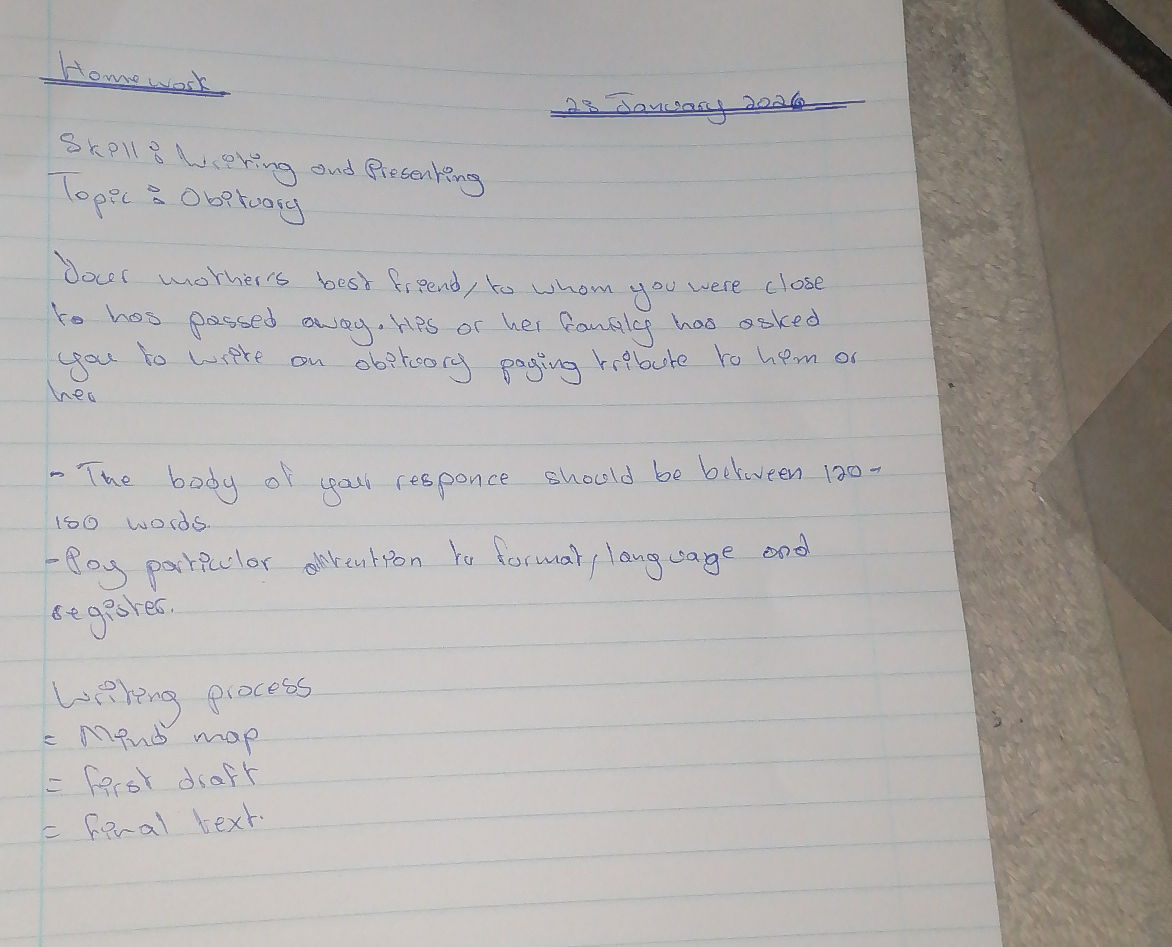 Homework
28 January 2026
Skill: Writing and Presenting
Topic: Obituary
Your mother's best friend, to whom you were close
to has passed away. His or her family has asked
you to write an obituary paying tribute to him or
her
- The body of your responce should be between 120-
150 words.
- Pay particular attention to format, language and
register.
Writing process
= Mind map
= first draft
= final text.